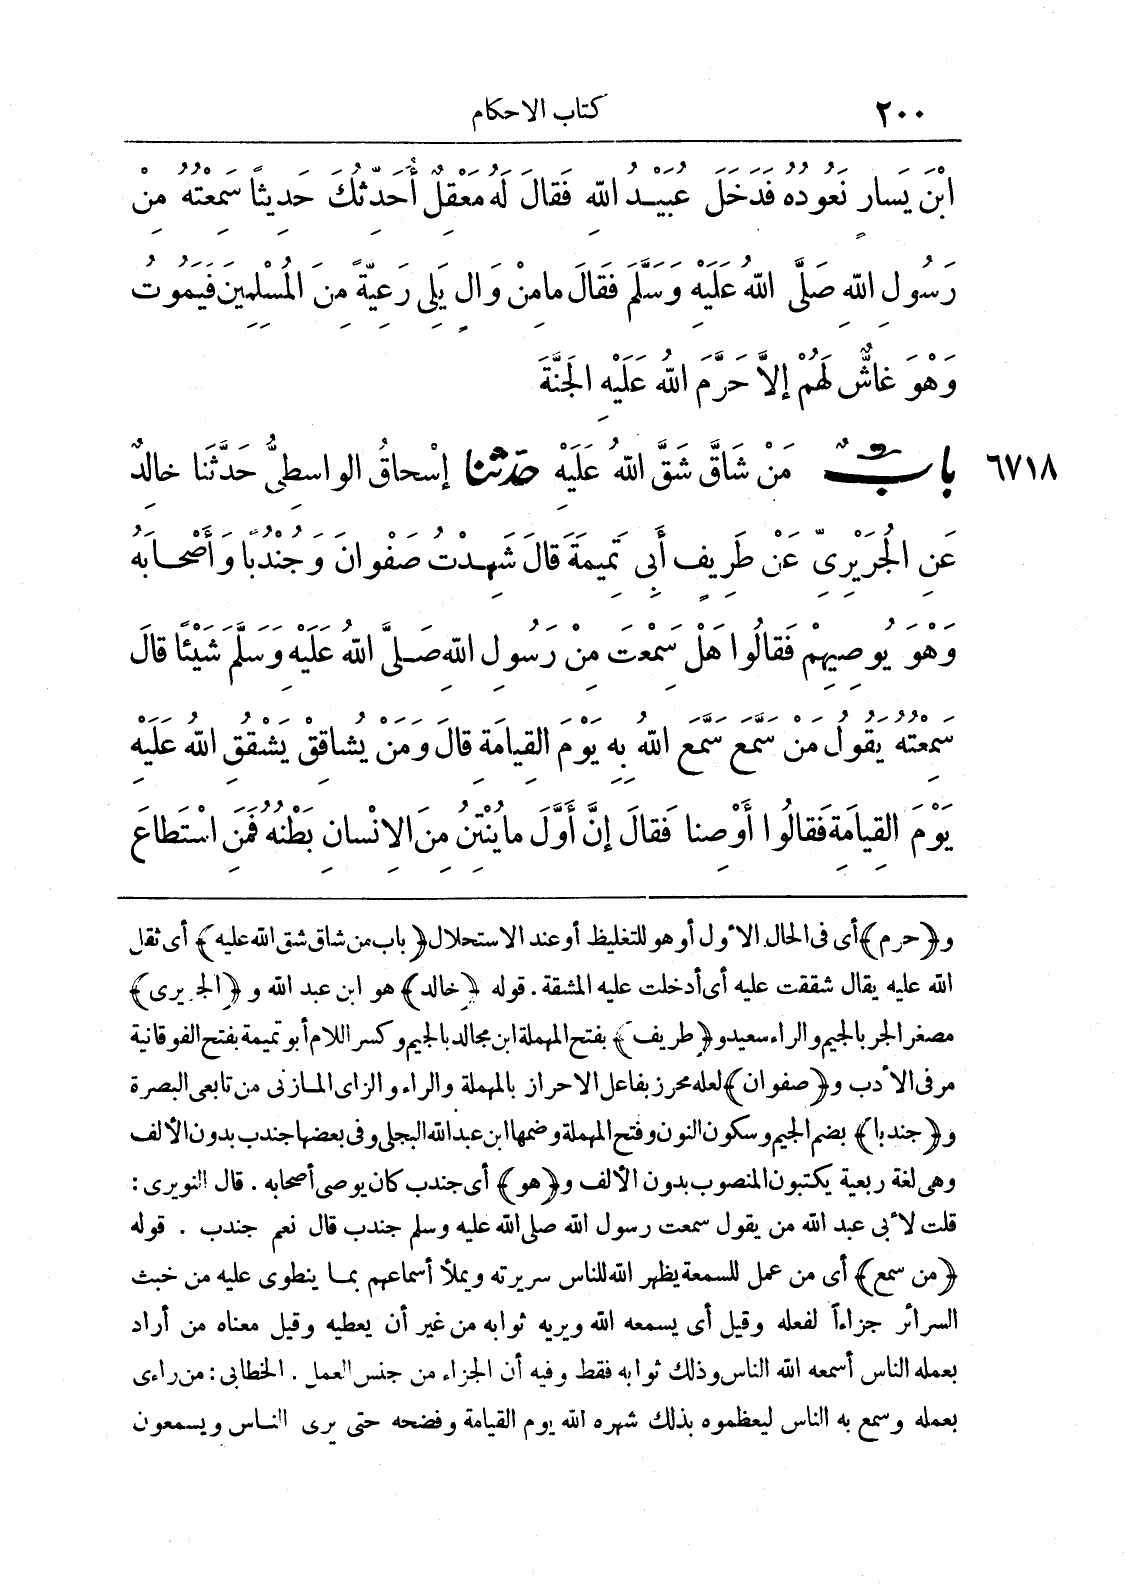 ٢٠٠ كتاب الاحكام
ابْنَ يَسارٍ نَعُودُهُ فَدَخَلَ عُبَيْدُ اللهِ فَقالَ لَهُ مَعْقِلٌ أُحَدِّثُكَ حَدِيثاً سَمِعْتُهُ مِنْ
رَسُولِ اللهِ صَلَّى اللهُ عَلَيْهِ وَسَلَّمَ فَقالَ مامِنْ وَالٍ يَلِى رَعِيَّةً مِنَ المُسْلِمِينَ فَيَمُوتُ
وَهْوَ غاشٌّ لَهُمْ إلاَّ حَرَّمَ اللهُ عَلَيْهِ الجَنَّةَ
٦٧١٨ بابٌ مَنْ شَاقَّ شَقَّ اللهُ عَلَيْهِ حَدَّثَنا إسْحاقُ الواسِطِىُّ حَدَّثَنا خالِدٌ
عَنِ الجُرَيْرِىِّ عَنْ طَرِيفٍ أَبِى تَمِيمَةَ قالَ شَهِدْتُ صَفْوانَ وَجُنْدُبًا وَأَصْحابَهُ
وَهْوَ يُوصِيهِمْ فَقالُوا هَلْ سَمِعْتَ مِنْ رَسُولِ اللهِ صَلَّى اللهُ عَلَيْهِ وَسَلَّمَ شَيْئًا قالَ
سَمِعْتُهُ يَقُولُ مَنْ سَمَّعَ سَمَّعَ اللهُ بِهِ يَوْمَ القِيامَةِ قالَ وَمَنْ يُشاقِقْ يَشْقُقِ اللهُ عَلَيْهِ
يَوْمَ القِيامَةِ فَقالُوا أَوْصِنا فَقالَ إنَّ أَوَّلَ مايُنْتِنُ مِنَ الانْسانِ بَطْنُهُ فَمَنِ اسْتَطاعَ
و﴿حرم﴾ أى فى الحال الأول أو هو للتغليظ أو عند الاستحلال ﴿باب من شاق شق الله عليه﴾ أى ثقل
الله عليه يقال شققت عليه أى أدخلت عليه المشقة. قوله ﴿خالد﴾ هو ابن عبد الله و ﴿الجريرى﴾
مصغر الجر بالجيم والراء سعيد و﴿طريف﴾ بفتح المهملة ابن مجالد بالجيم وكسر اللام أبو تميمة بفتح الفوقانية
مر فى الأدب و﴿صفوان﴾ لعله محرز بفاعل الاحراز بالمهملة والراء والزاى المازنى من تابعى البصرة
و﴿جندبا﴾ بضم الجيم وسكون النون وفتح المهملة وضمها ابن عبد الله البجلى وفى بعضها جندب بدون الألف
وهى لغة ربعية يكتبون المنصوب بدون الألف و﴿هو﴾ أى جندب كان يوصى أصحابه. قال النويرى:
قلت لأبى عبد الله من يقول سمعت رسول الله صلى الله عليه وسلم جندب قال نعم جندب . قوله
﴿من سمع﴾ أى من عمل للسمعة يظهر الله للناس سريرته ويملأ أسماعهم بما ينطوى عليه من خبث
السرائر جزاءاً لفعله وقيل أى يسمعه الله ويريه ثوابه من غير أن يعطيه وقيل معناه من أراد
بعمله الناس أسمعه الله الناس وذلك ثوابه فقط وفيه أن الجزاء من جنس العمل . الخطابى: من راءى
بعمله وسمع به الناس ليعظموه بذلك شهره الله يوم القيامة وفضحه حتى يرى الناس ويسمعون